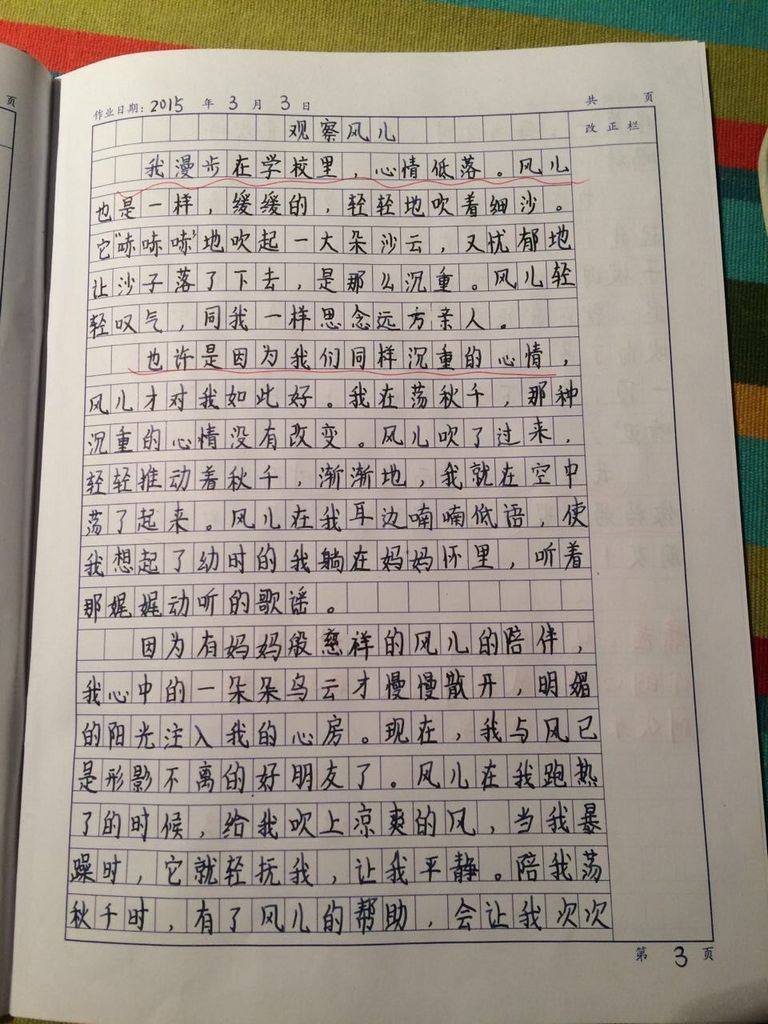 页
作业日期: 2015 年 3 月 3 日 共 页
观察风儿 改正栏
我漫步在学校里，心情低落。风儿
也是一样，缓缓的，轻轻地吹着细沙。
它“哧哧哧”地吹起一大朵沙云，又忧郁地
让沙子落了下去，是那么沉重。风儿轻
轻叹气，同我一样思念远方亲人。
也许是因为我们同样沉重的心情，
风儿才对我如此好。我在荡秋千，那种
沉重的心情没有改变。风儿吹了过来，
轻轻推动着秋千，渐渐地，我就在空中
荡了起来。风儿在我耳边喃喃低语，使
我想起了幼时的我躺在妈妈怀里，听着
那娓娓动听的歌谣。
因为有妈妈般慈祥的风儿的陪伴，
我心中的一朵朵乌云才慢慢散开，明媚
的阳光注入我的心房。现在，我与风已
是形影不离的好朋友了。风儿在我跑热
了的时候，给我吹上凉爽的风，当我暴
躁时，它就轻抚我，让我平静。陪我荡
秋千时，有了风儿的帮助，会让我次次
第 3 页